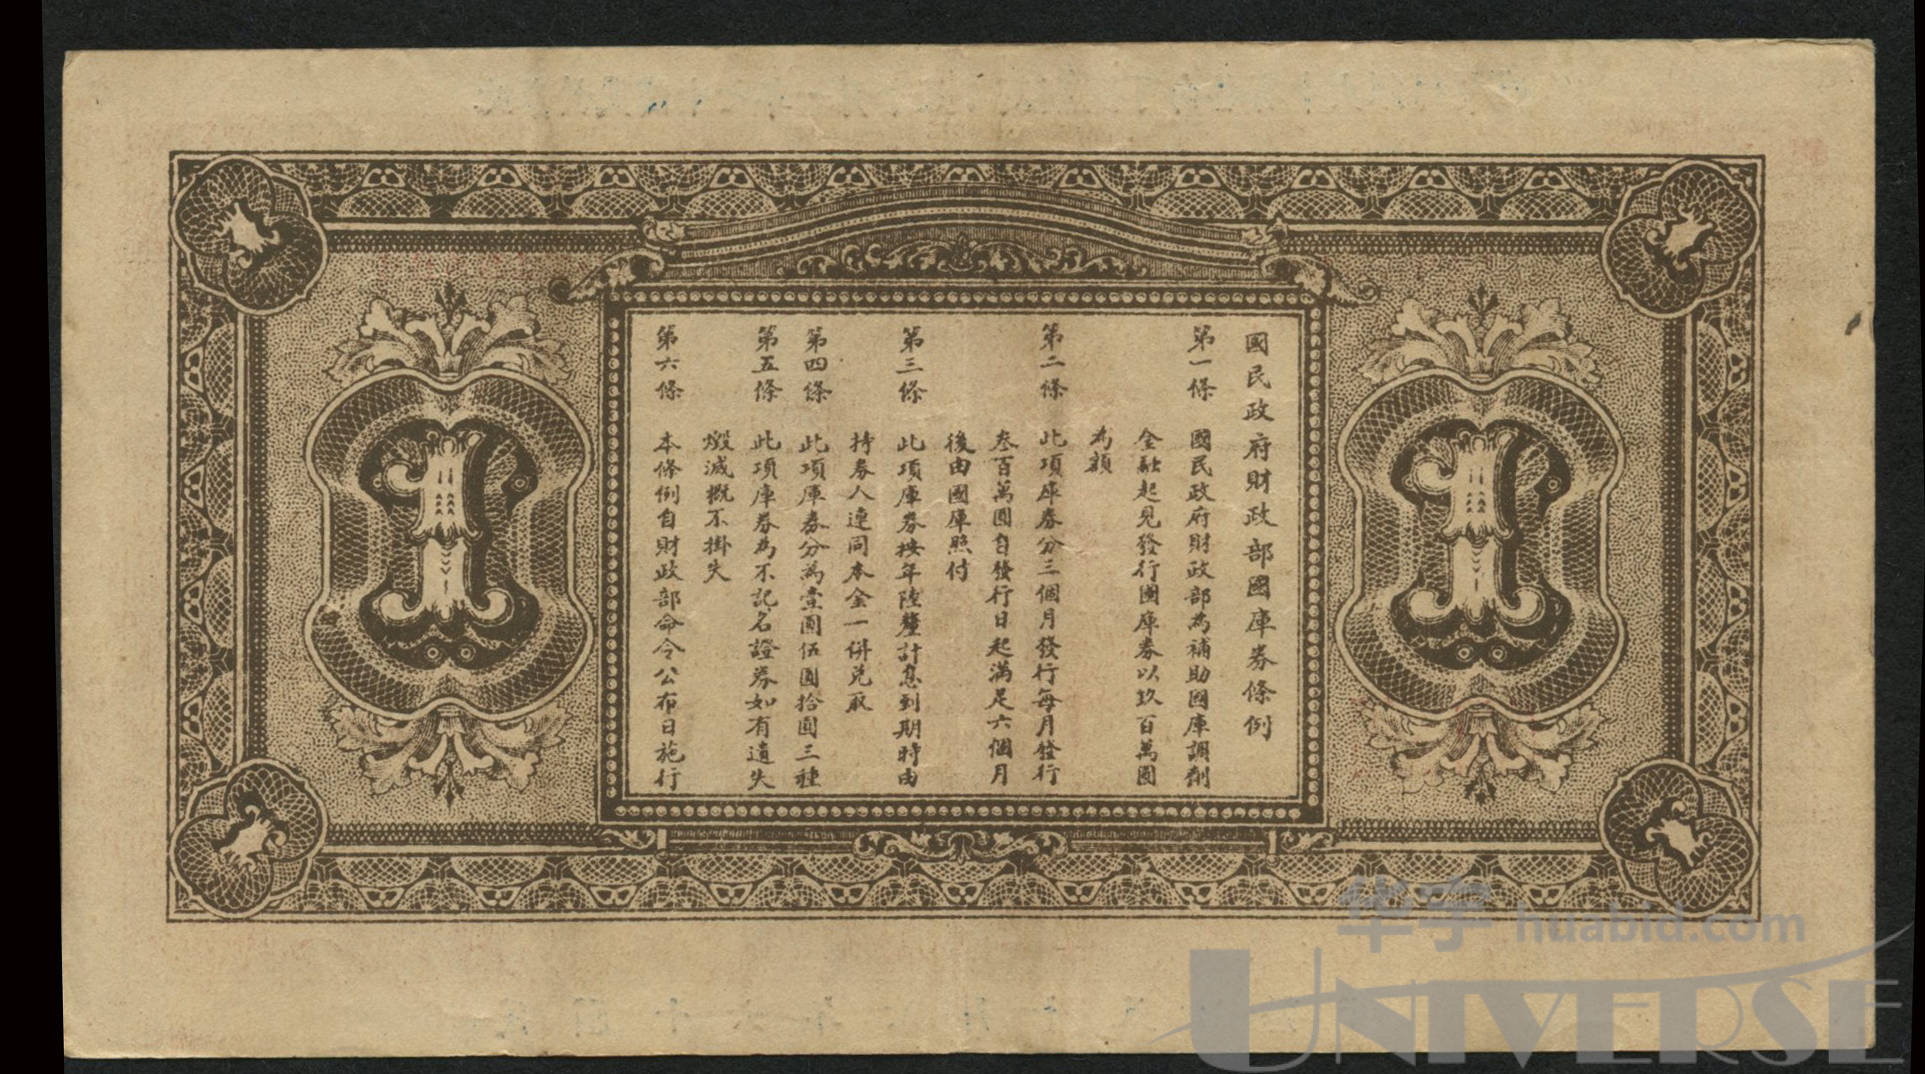 國民政府財政部國庫券條例
第一條 國民政府財政部為補助國庫調劑
金融起見發行國庫券以玖百萬圓
為額
第二條 此項庫券分三個月發行每月發行
叁百萬圓自發行日起滿足六個月
後由國庫照付
第三條 此項庫券按年陸釐計息到期時由
持券人連同本金一併兌取
第四條 此項庫券分為壹圓伍圓拾圓三種
第五條 此項庫券為不記名證券如有遺失
燬滅概不掛失
第六條 本條例自財政部命令公布日施行
1
1
华宇 huabid.com
UNIVERSE